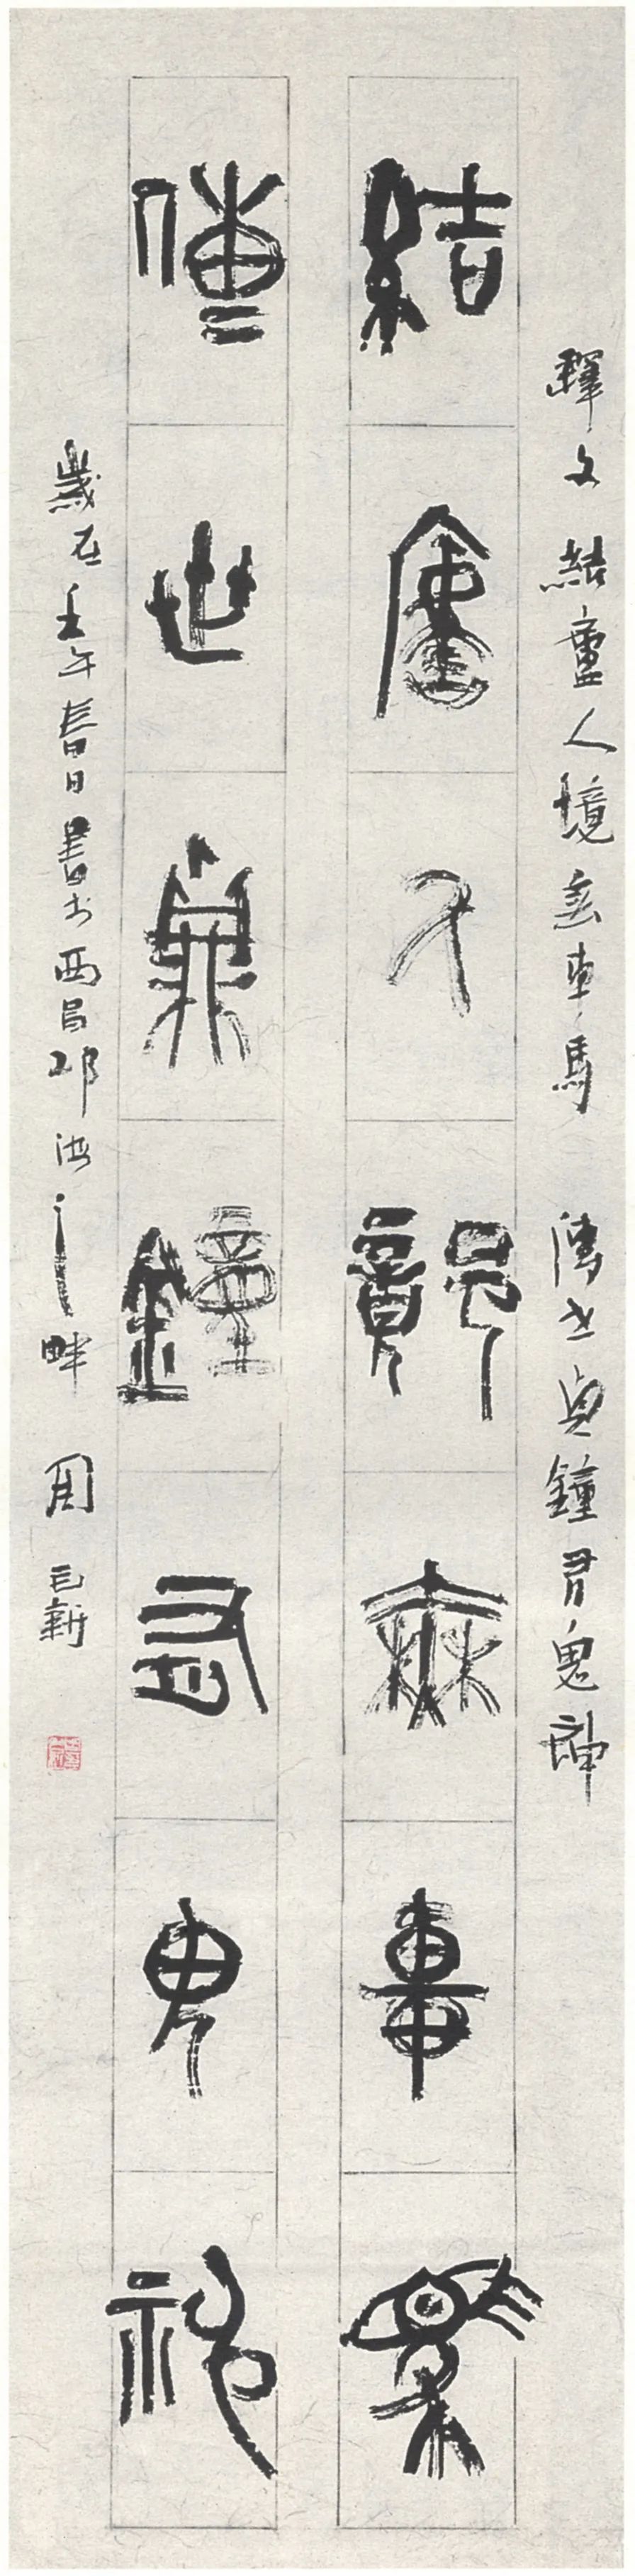 釋文 結廬人境無車馬 傳世鼎鐘有鬼神
結廬人境無車馬
傳世鼎鐘有鬼神
歲在壬午春日書於西昌邛海之畔 周已新